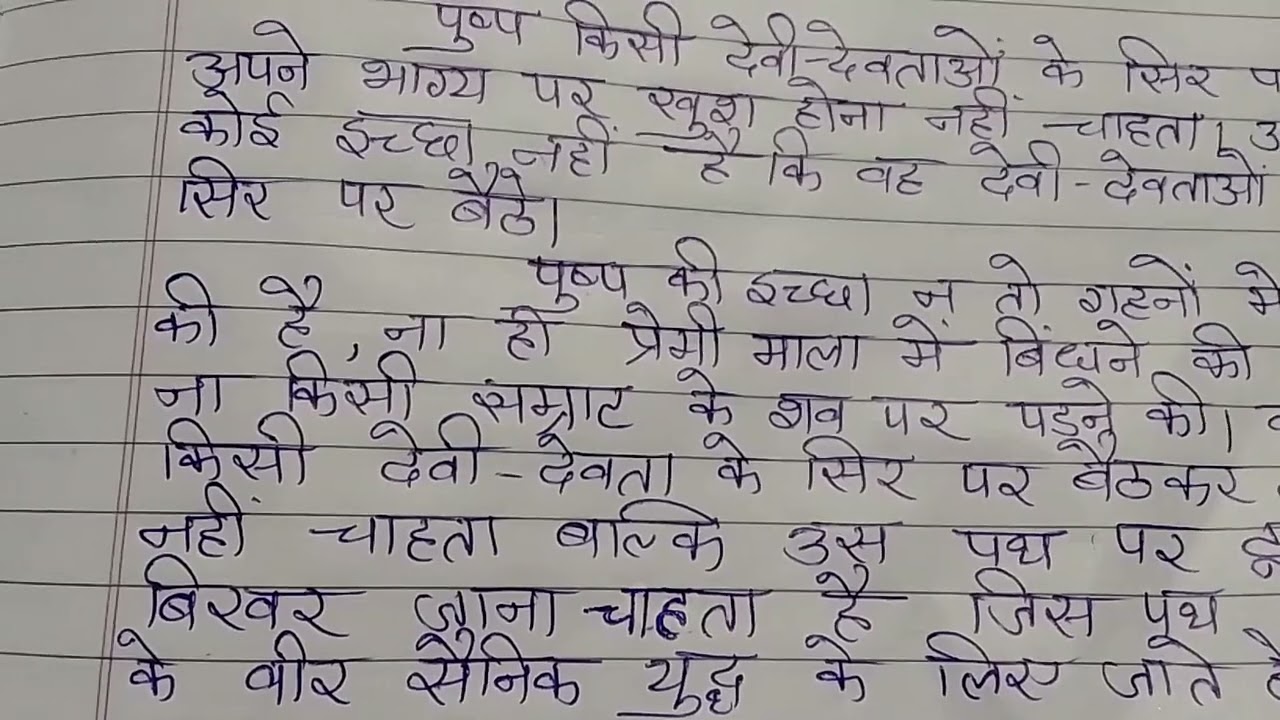 पुष्प किसी देवी-देवताओं के सिर
अपने भाग्य पर खुश होना नहीं चाहता।
कोई इच्छा नहीं है कि वह देवी-देवताओं
सिर पर बैठे।
पुष्प की इच्छा न तो गहनों में
की है, ना ही प्रेमी माला में बिंधने की
ना किसी सम्राट के शव पर पड़ने की।
किसी देवी-देवता के सिर पर बैठकर
नहीं चाहता बल्कि उस पथ पर
बिखर जाना चाहता है जिस पथ
के वीर सैनिक युद्ध के लिए जाते